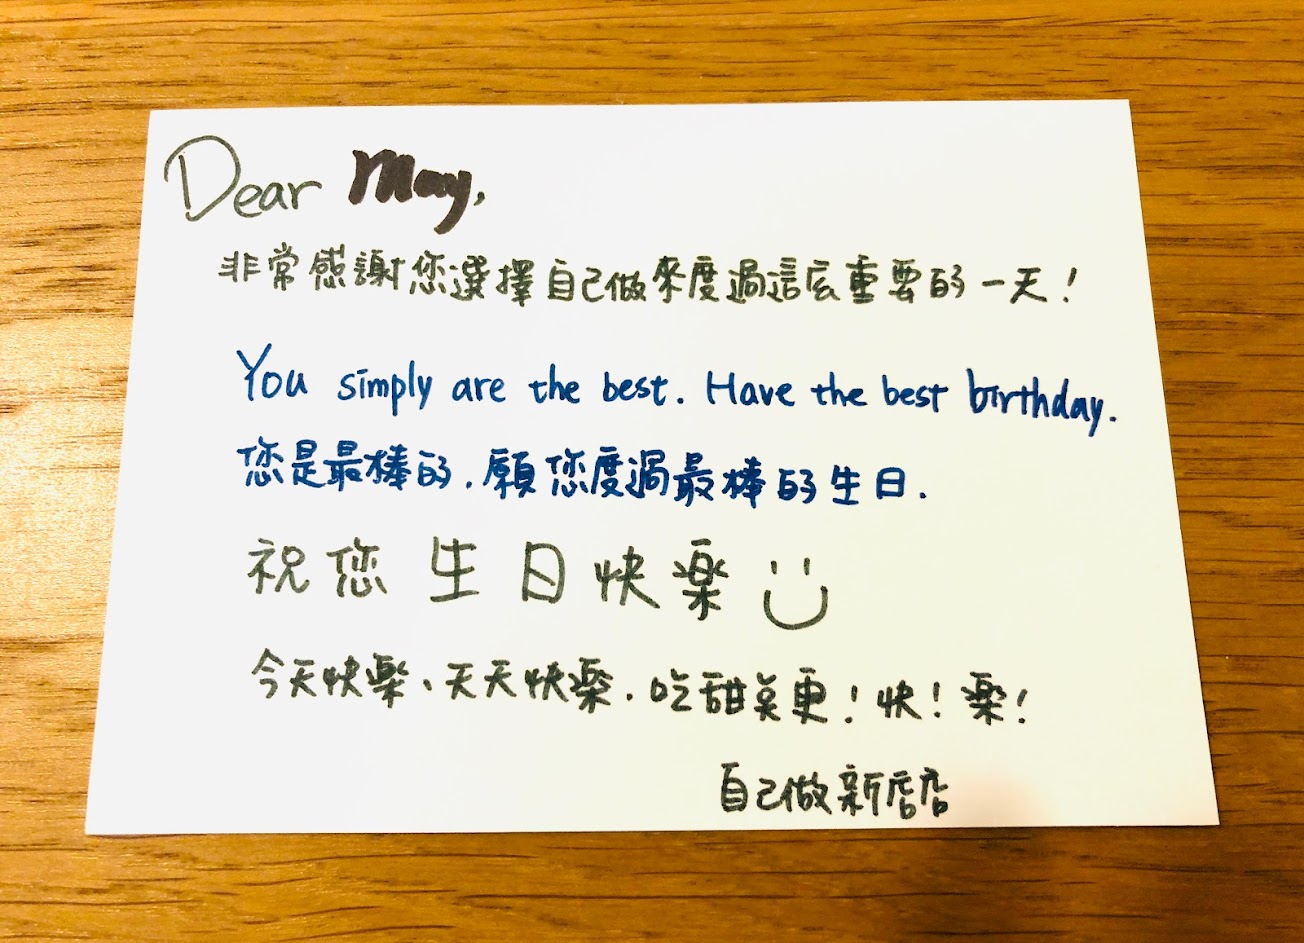 Dear May,
非常感謝您選擇自己做來度過這麼重要的一天！
You simply are the best. Have the best birthday.
您是最棒的．願您度過最棒的生日．
祝您生日快樂
今天快樂、天天快樂．吃甜食更！快！樂！
自己做新店店